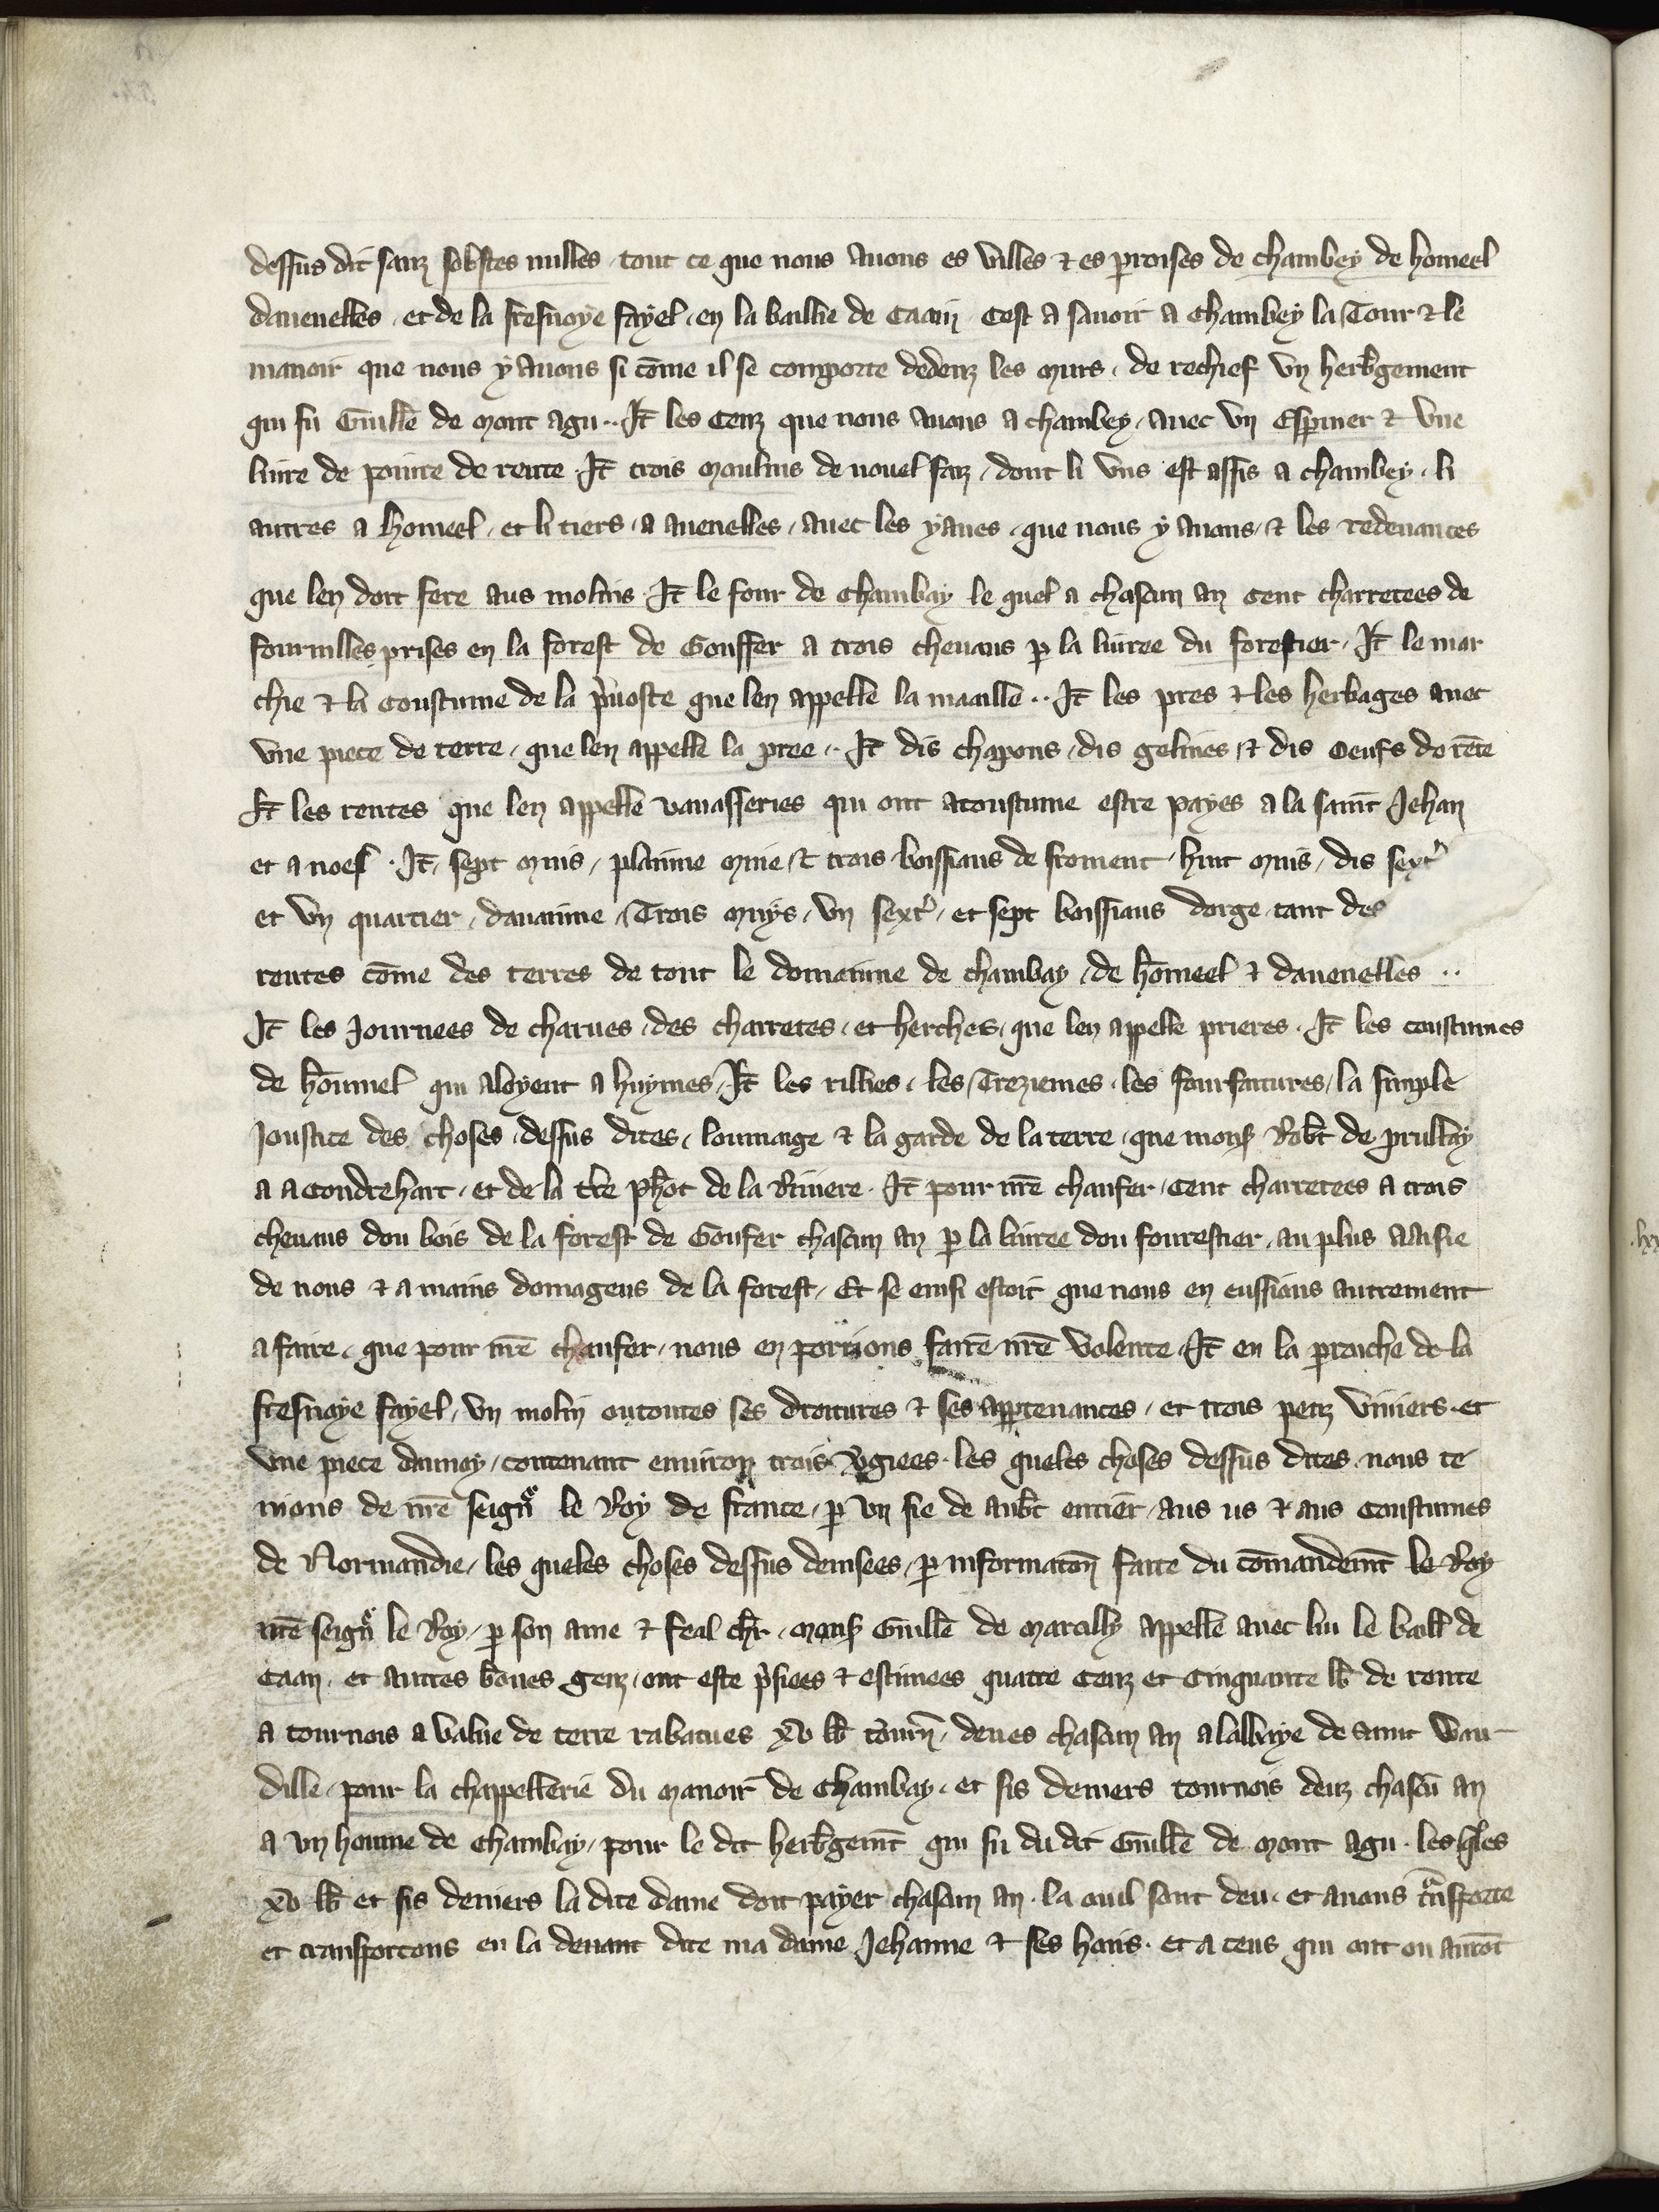 dessus dit sanz sobstes nulles tout ce que nous auons es villes ⁊ es parroises de chambey de homeel
dauenelles . et de la fresnoye fayel . en la baillie de Caan Cest a sauoir a Chambey la Tour ⁊ le
manoir que nous y auons si cōme il se comporte dedenz les murs . de rechief vn herb̄gement
qui fu Guill̄e de mont agu .. It̄ les Cenz que nous auons a chambey . auec vn Esperuier ⁊ vne
liure de poiure de rente . It̄ trois moulins de nouel faiz . dont li vns est assis a chambey . li
autres a Homeel . et li tiers . a auenelles . auec les yaues . que nous y auons . ⁊ les redeuances
que len doit fere aus molins . It̄ le four de Chambay le quel a chascun an cent charretees de
fournilles prises en la forest de Gouffer a trois cheuaus p̱ la liuree du forestier . It̄ le mar
chie ⁊ la coustume de la p̄uoste que len appelle la maaille .. It̄ les pres ⁊ les herbages auec
vne piece de terre . que len appelle la pree .. It̄ dis chapons . dis gelines . ⁊ dis Oeufs de rēte
It̄ les rentes que len appelle vauasseries qui ont acoustume estre payes a la saint Jehan
et a noel . It̄ . sept muis . plainne mine . ⁊ trois boissiaus de froment . huit muis . dis sext̕
et vn quartier . dauainne . Trois muys . vn sext̕ . et sept boissiaus dorge . tant des
rentes cōme des terres de tout le domainne de chambay . de hōmeel ⁊ dauenelles ..
It̄ les Journees de charues . des charretes . et herches . que len appelle prieres . It̄ les coustumes
de hōmmel qui aloyent a huymes . It̄ les rilliés . les Treziemes . les fourfaitures . la simple
Joustice des choses dessus dites . loumage ⁊ la garde de la terre . que mons̄ Rob̄t de prullay
a a Coudrehart . et de la tr̄e ph̄ot de la Riuiere . It̄ pour nr̄e chaufer . Cent charretees a trois
cheuaus dou bois de la forest de Goufer chascun an p̱ la liuree dou fourestier . au plus aaisie
de nous ⁊ a mains domageus de la forest . Et se einsi estoit que nous en eussions autrement
a faire . que pour nr̄e chaufer . nous en porrions faire nr̄e volente . It̄ en la parroiche de la
fresnoye fayel . vn molin ou toutes ses droitures ⁊ ses appartenances . et trois petiz viuiers . et
vne piece daunoy . contenant enuiron trois v̄giees . les queles choses dessus dites nous te
nions de nr̄e seign̄r le Roy de france . p̱ vn fie de aub̄t entier . aus us ⁊ aus Coustumes
de Normandie . les queles choses dessus deuisees . p̱ informatōn faite du cōmandemt̄ le Roy
nr̄e seign̄r le Roy . p̱ son ame ⁊ feal ch̄r . mons̄ Guill̄e de marcilly appelle auec lui le baill̄ de
Caan . et autres bōnes genz . ont este p̄sies ⁊ estimees quatre cenz et Cinquante lb̄ de rente
a tournois a value de terre rabatues xv lb̄ tourn̄ . deues chascun an a labbaye de saint Wan
drille . pour la chappellerie du manoir de Chambay . et sis deniers tournois deuz chascū an
a vn homme de Chambay . pour le dit herb̄gemt̄ qui fu du dit Guill̄e de mont agu . les q̄les
xv lb̄ et sis deniers la dite dame doit payer chascun an . la ouil sont deu . et auons trāsporte
et transportons en la deuant dite ma dame Jehanne ⁊ ses hoirs . et a ceus qui ont ou aurōt